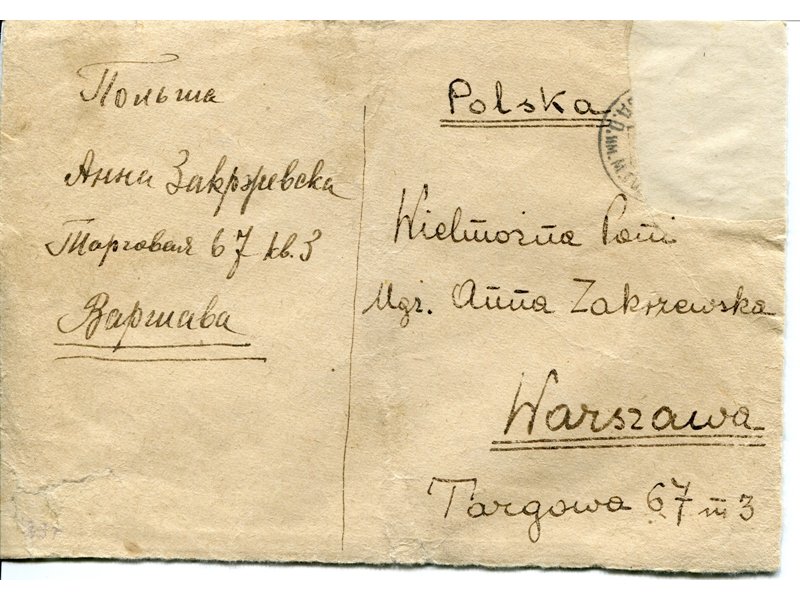 Польша
Анна Закржевска
Торговая 67 кв. 3
Варшава
Polska
Wielmożna Pani
Mgr. Anna Zakrzewska
Warszawa
Targowa 67 m 3